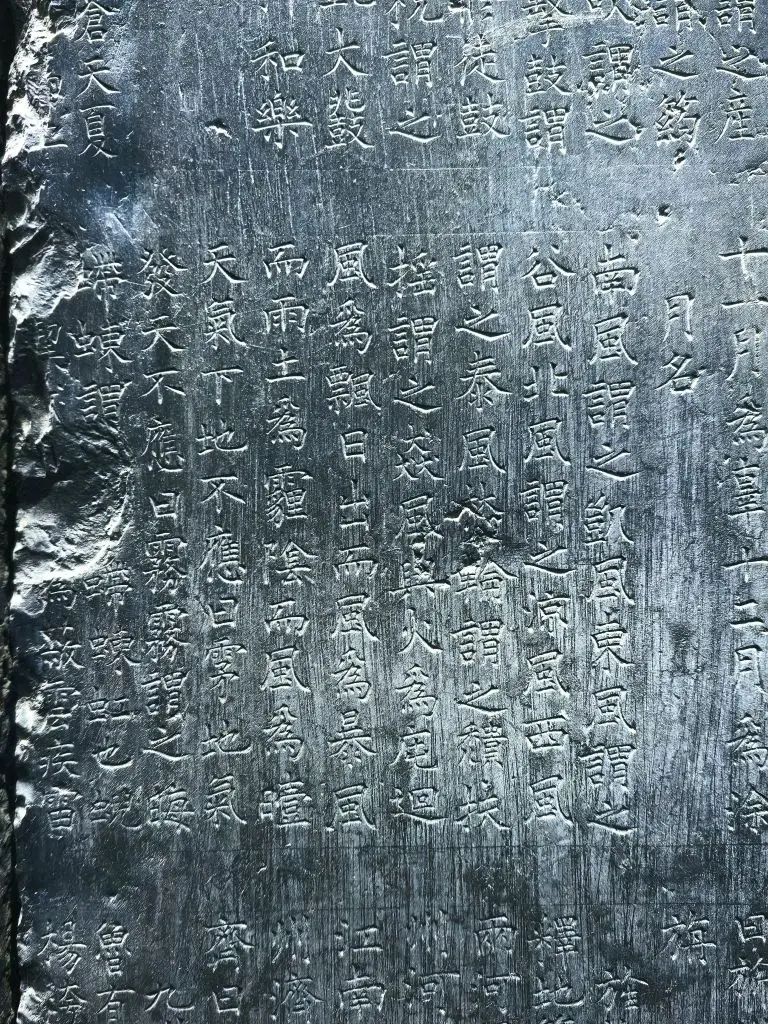 謂之産
謂之箹
吹謂之
擊鼓謂
徒鼓
柷謂之
大鼗
和樂
蒼天夏
十一月為辜十二月為涂
月名
南風謂之凱風東風謂之
谷風北風謂之涼風西風
謂之泰風焚輪謂之穨扶
搖謂之猋風與火為庉迴
風為飄日出而風為暴風
而雨土為霾陰而風為曀
天氣下地不應曰雺地氣
發天不應曰霧霧謂之晦
螮蝀謂螮蝀虹也蜺
挈為蔽雲疾雷
旃
旌
釋地
兩河
州河
江南
州濟
齊曰
九
魯有
楊陓